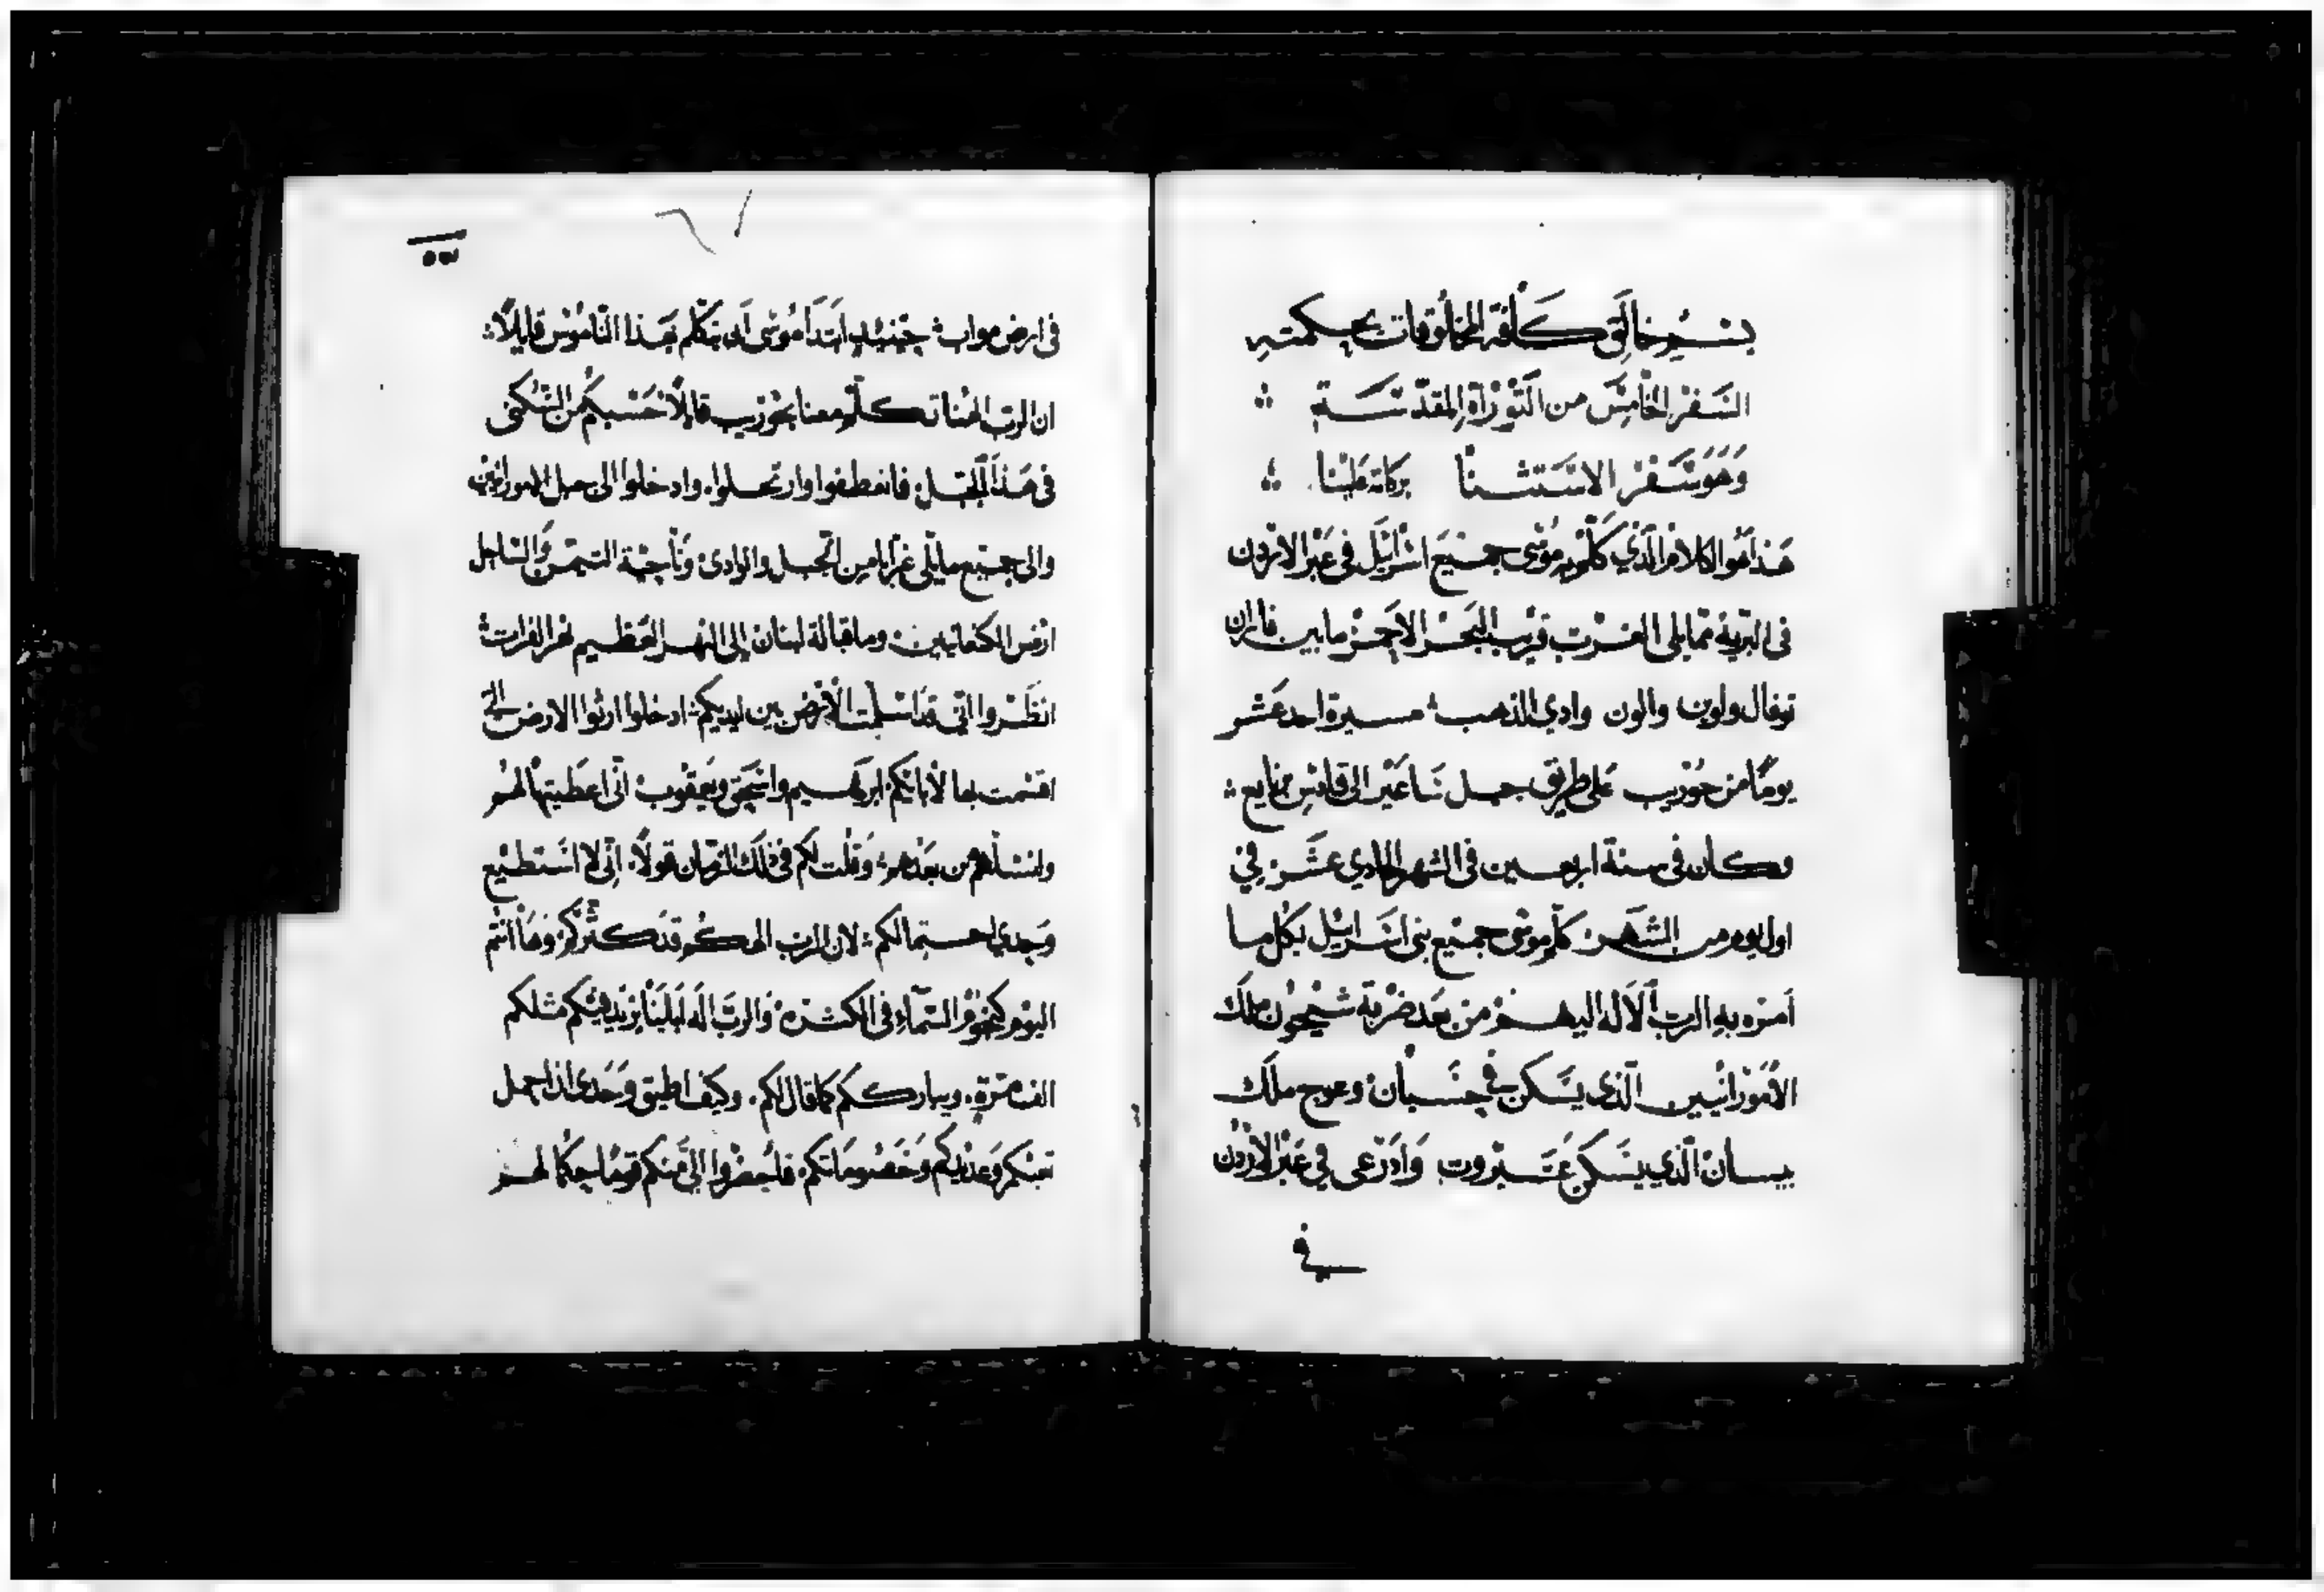 بسم خالق كافة المخلوقات بحكمته
السفر الخامس من التوراة المقدسة
وهو سفر الاستثنا بركاته علينا
هذا هو الكلام الذي كلم به موسى جميع اسرايل في عبر الاردن
في البرية مما يلي الغرب قرب البحر الاحمر ما بين فاران
توفال ولوبن والون وادي الذهب مسيرة احد عشر
يوما من حوريب على طريق جبل ساعير الى قادس برنايع
وكان في سنة اربعين في الشهر الحادي عشر في
اول يوم من الشهر كلم موسى جميع بني اسرايل بكل ما
امره به الرب الاله اليهم من بعد ضربة شيحون ملك
الامورانيين الذي يسكن في حسبان وعوج ملك
بيسان الذي يسكن عستروت وادرعى في عبر الاردن
في
في ارض مواب حينيذ ابتدا موسى ان يتكلم بهذا الناموس قايلا
ان الرب الهنا تكلم معنا بحوريب قايلا حسبكم من السكنى
في هذا الجبل فانعطفوا وارتحلوا وادخلوا الى جبل الامورانيين
والى جميع ما يلي غرابا من الجبل والوادي وناحية التيمن والساحل
ارض الكنعانيين وما قبالة لبنان الى النهر العظيم نهر الفرات
انظروا اني قد اسلمت الارض بين ايديكم ادخلوا ارثوا الارض التي
اقسمت بها لابائكم ابرهيم واسحق ويعقوب اني اعطيتها لهم
ولنسلهم من بعدهم وقلت لكم في ذلك الزمان قولا اني لا استطيع
وحدي احتمالكم لان الرب الهكم قد كثركم وها انتم
اليوم كنجوم السماء في الكثرة والرب اله ابائنا يزيد فيكم مثلكم
الف مرة ويبارككم كما قال لكم وكيف اطيق وحدي ان احمل
تعبكم وعديدكم وخصوماتكم فاحضروا الي منكم قوما حكما لهم